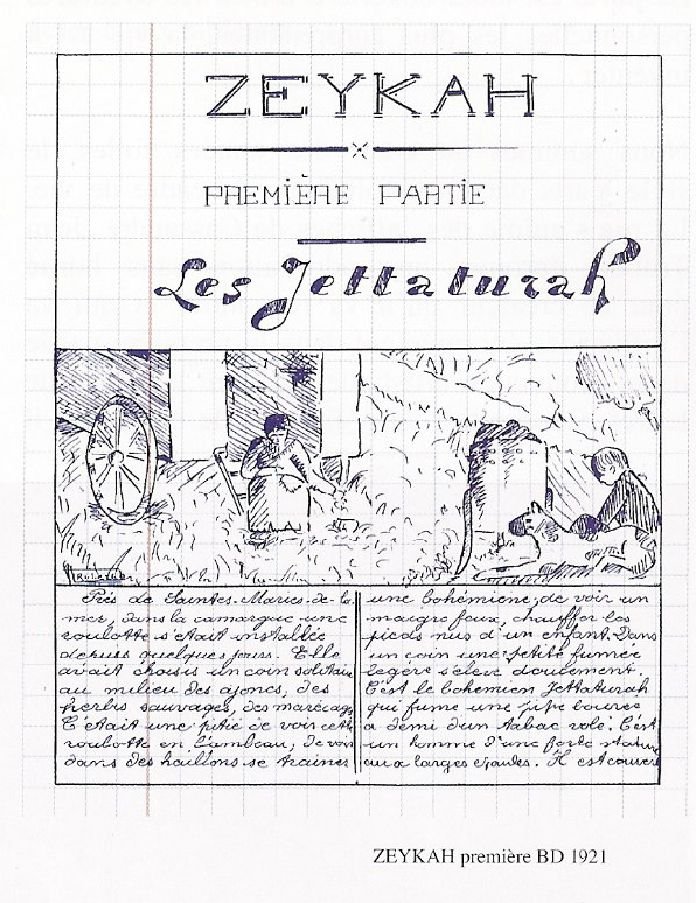 ZEYKAH
PREMIÈRE PARTIE
Les Jettaturah
Près de Saintes-Maries-de-la
mer, dans la camargue une
roulotte s'était installée
depuis quelques jours. Elle
avait choisi un coin solitaire
au milieu des ajoncs, des
herbes sauvages, des marécages
C'était une pitié de voir cette
roulotte en lambeau; de voir
dans des haillons se traîner
une bohémiene; de voir un
maigre feux, chauffer les
pieds nus d'un enfant. Dans
un coin une petite fumée
légère s'élève doucement.
C'est le bohémien Jettaturah
qui fume une pipe bourrée
a demi d'un tabac volé. C'est
un homme d'une forte stature
aux larges épaules. Il est couvert
ZEYKAH première BD 1921